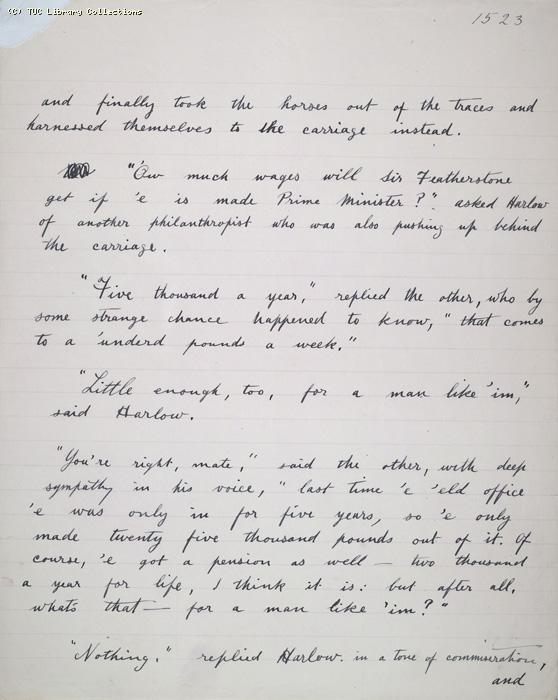 (C) TUC Library Collections
1523
and finally took the horses out of the traces and
harnessed themselves to the carriage instead.
"'Ow much wages will Sir Featherstone
get if 'e is made Prime Minister?" asked Harlow
of another philanthropist who was also pushing up behind
the carriage.
"Five thousand a year," replied the other, who by
some strange chance happened to know, "that comes
to a 'underd pounds a week."
"Little enough, too, for a man like 'im,"
said Harlow.
"You're right, mate," said the other, with deep
sympathy in his voice, "last time 'e 'eld office
'e was only in for five years, so 'e only
made twenty five thousand pounds out of it. Of
course, 'e got a pension as well — two thousand
a year for life, I think it is: but after all,
what's that — for a man like 'im?"
"Nothing." replied Harlow. in a tone of commiseration,
and